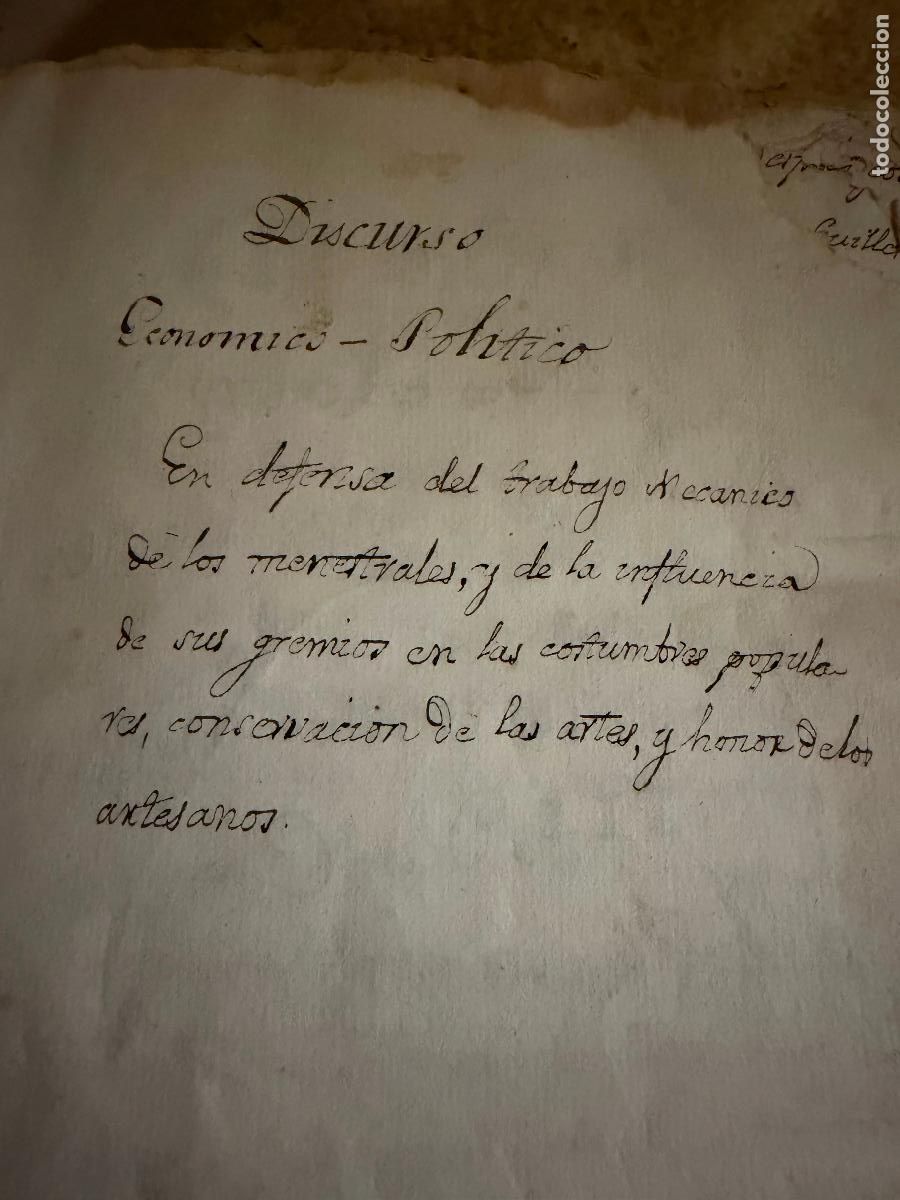 Discurso
Economico - Politico
En defensa del trabajo Mecanico
de los menestrales, y de la influencia
de sus gremios en las costumbres popula
res, conservacion de las artes, y honor de los
artesanos.
todocoleccion